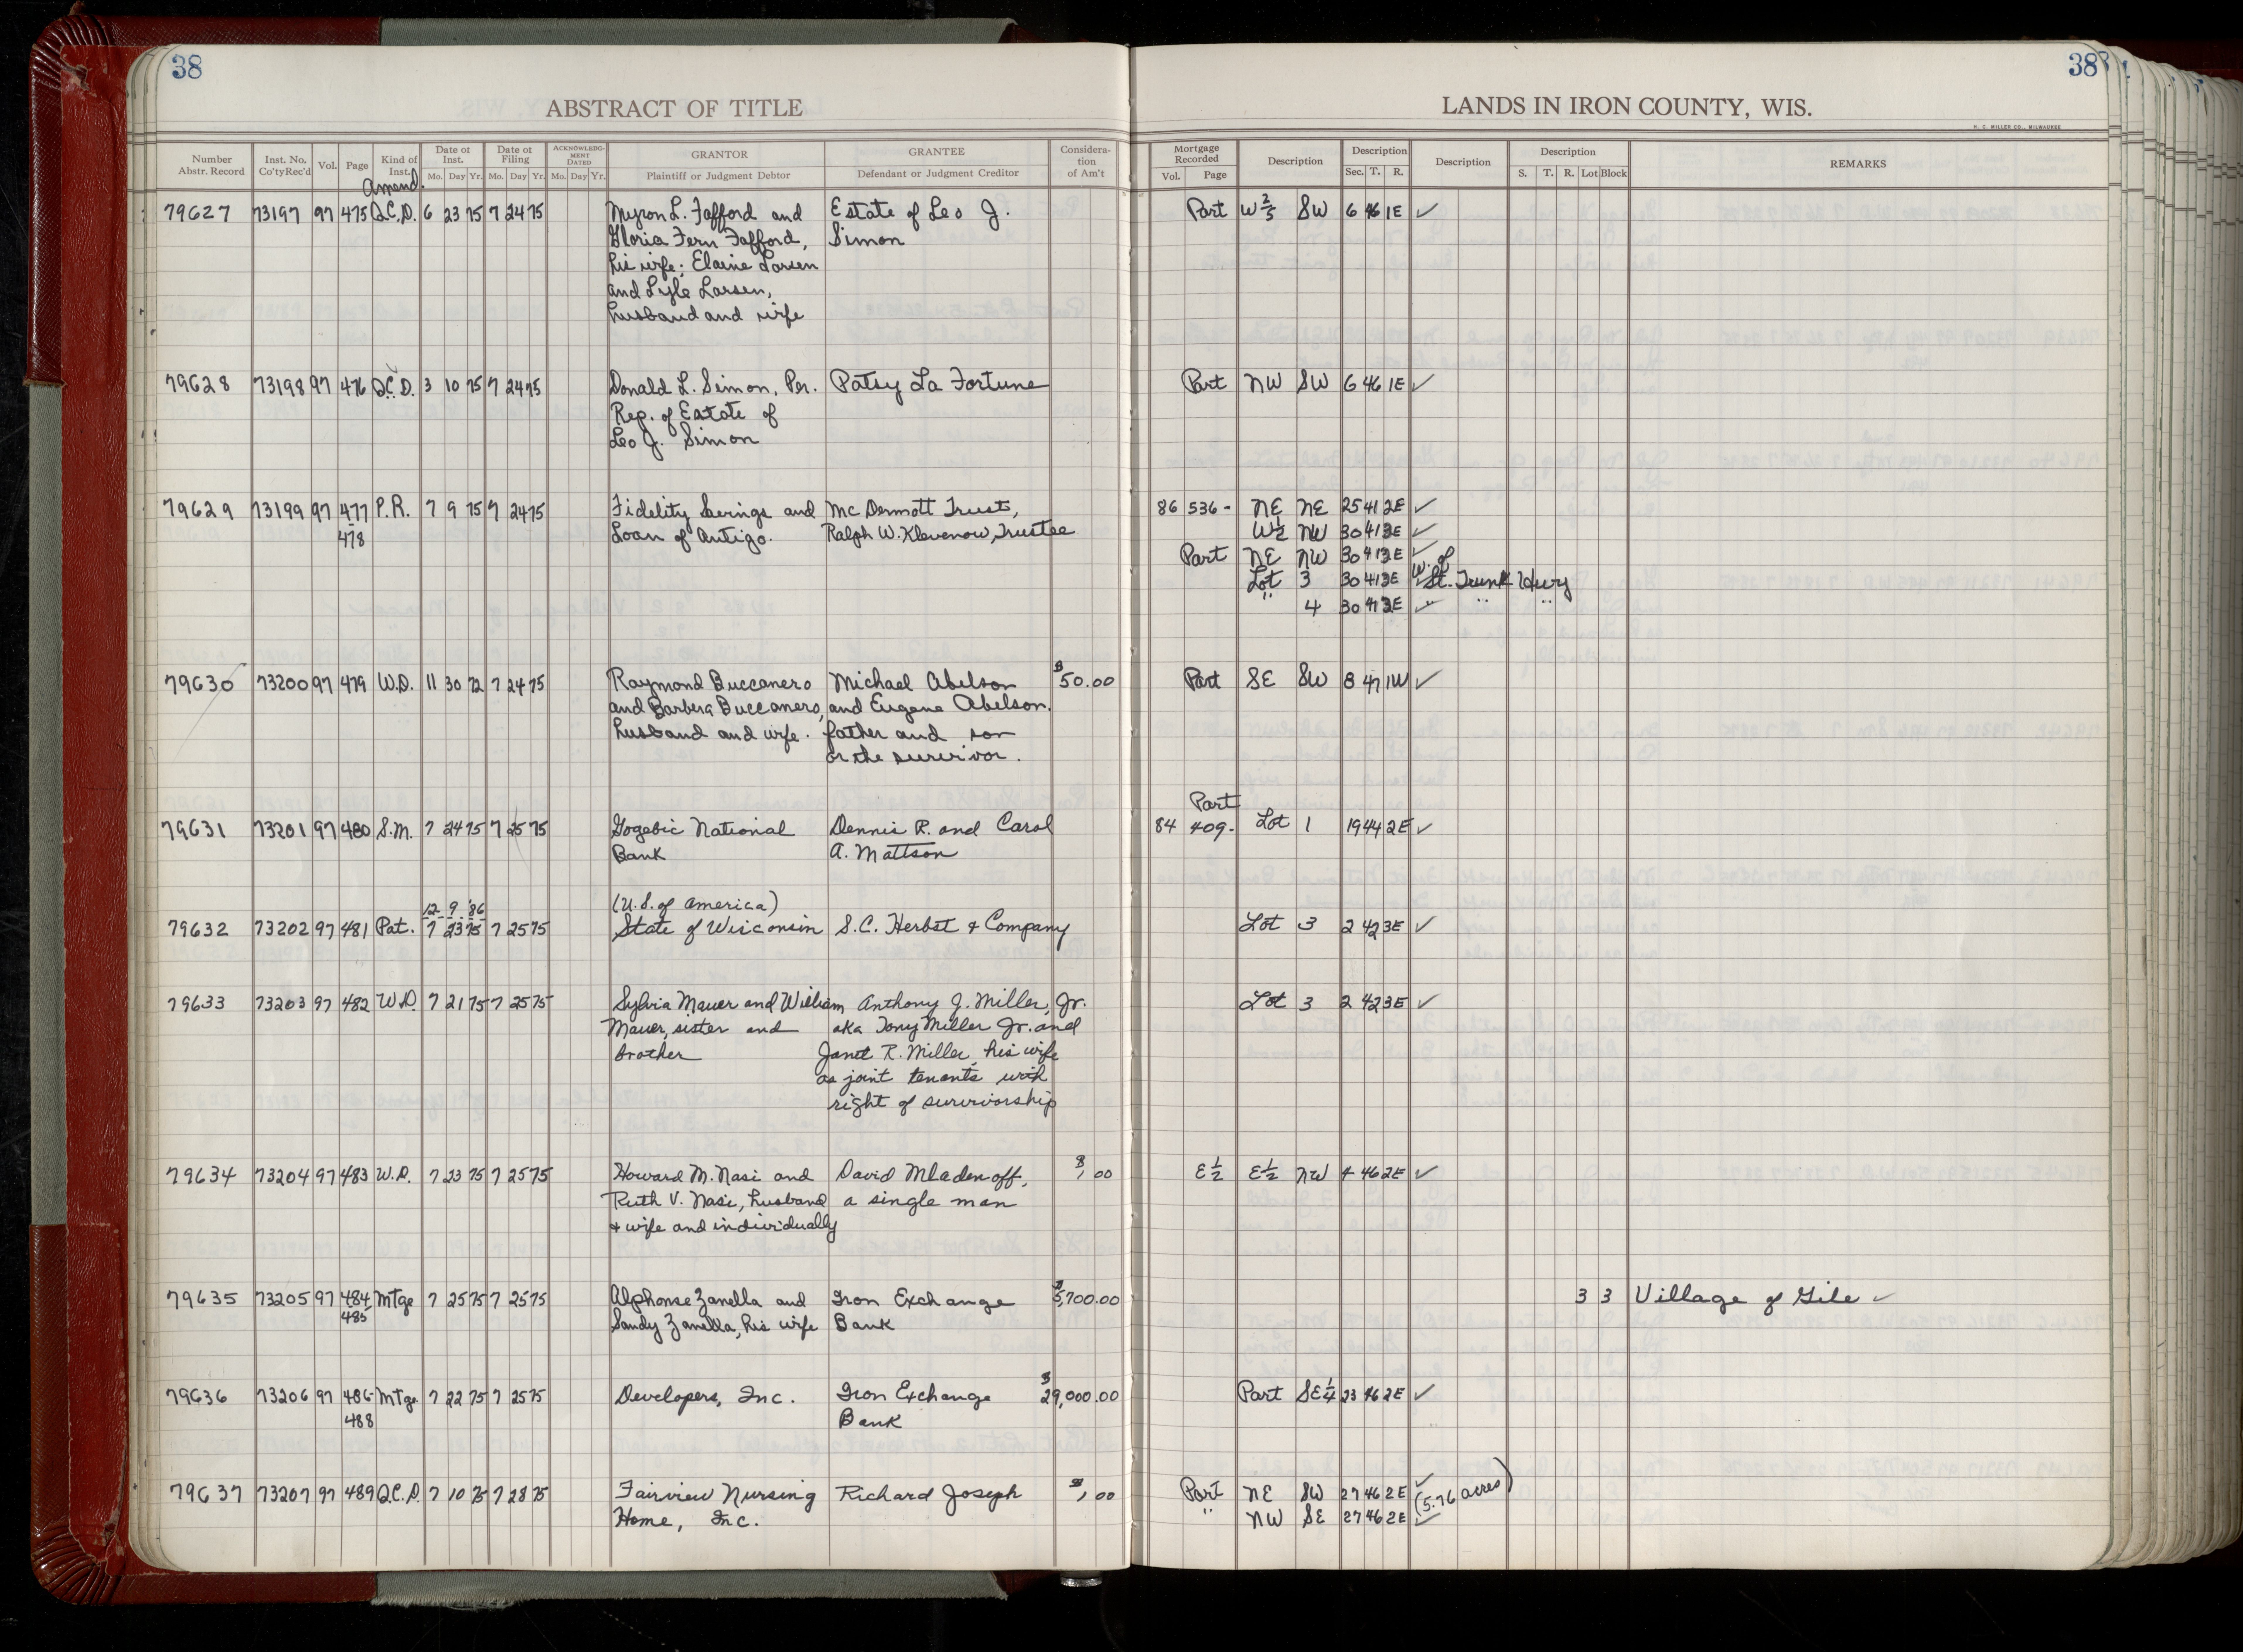 38
38
ABSTRACT OF TITLE
LANDS IN IRON COUNTY, WIS.
H. C. MILLER CO., MILWAUKEE
Number Abstr. Record Inst. No. Co'ty Rec'd Vol. Page Kind of Inst. Date of Inst. Mo. Day Yr. Date of Filing Mo. Day Yr. ACKNOWLEDGMENT DATED Mo. Day Yr. GRANTOR Plaintiff or Judgment Debtor GRANTEE Defendant or Judgment Creditor Consideration of Am't Mortgage Recorded Vol. Page Description Description Sec. T. R. Description Description S. T. R. Lot Block REMARKS
Amend.
79627 73197 97 475 Q.C.D. 6 23 75 7 24 75 Myron L. Fafford and Estate of Leo J. Part W 2/3 SW 6 46 1E ✓
Gloria Fern Fafford, Simon
his wife; Elaine Larsen
and Lyle Larsen,
husband and wife
79628 73198 97 476 Q.C.D. 3 10 75 7 24 75 Donald L. Simon, Per. Patsy La Fortune Part NW SW 6 46 1E ✓
Rep. of Estate of
Leo J. Simon
79629 73199 97 477 P.R. 7 9 75 7 24 75 Fidelity Savings and Mc Dermott Trust, 86 536- NE NE 25 41 2E ✓
478 Loan of Antigo. Ralph W. Klevenow, Trustee W½ NW 30 41 3E ✓
Part NE NW 30 41 3E ✓
Lot 3 30 41 3E W. of St. Trunk Hwy
" 4 30 41 3E ✓ " " "
79630 73200 97 479 W.D. 11 30 72 7 24 75 Raymond Buccanero Michael Abelson $50.00 Part SE SW 8 47 1W ✓
and Barbera Buccanero, and Eugene Abelson,
husband and wife. father and son
or the survivor.
Part
79631 73201 97 480 S.M. 7 24 75 7 25 75 Gogebic National Dennis R. and Carol 84 409- Lot 1 19 44 2E ✓
Bank A. Mattson
12 9 '86 (U.S. of America)
79632 73202 97 481 Pat. 7 23 75 7 25 75 State of Wisconsin S.C. Herbst & Company Lot 3 2 42 3E ✓
79633 73203 97 482 W.D. 7 21 75 7 25 75 Sylvia Mauer and William Anthony J. Miller, Jr. Lot 3 2 42 3E ✓
Mauer, sister and aka Tony Miller Jr. and
brother Janet R. Miller, his wife
as joint tenants with
right of survivorship
79634 73204 97 483 W.D. 7 23 75 7 25 75 Howard M. Nasi and David Mladenoff, $1.00 E½ E½ NW 4 46 2E ✓
Ruth V. Nasi, husband a single man
& wife and individually
79635 73205 97 484 Mtge 7 25 75 7 25 75 Alphonse Zanella and Iron Exchange $5,700.00 3 3 Village of Gile ✓
485 Sandy Zanella, his wife Bank
79636 73206 97 486- Mtge 7 22 75 7 25 75 Developers, Inc. Iron Exchange $29,000.00 Part SE¼ 23 46 2E ✓
488 Bank
79637 73207 97 489 Q.C.D. 7 10 75 7 28 75 Fairview Nursing Richard Joseph $1.00 Part NE SW 27 46 2E ✓ (5.76 acres)
Home, Inc. " NW SE 27 46 2E ✓